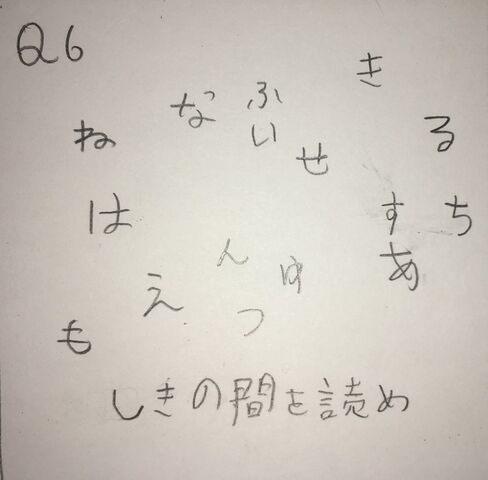 Q6
き
な ふ
ね い る
せ
は す ち
ん ゆ あ
え
つ
も
しきの間を読め